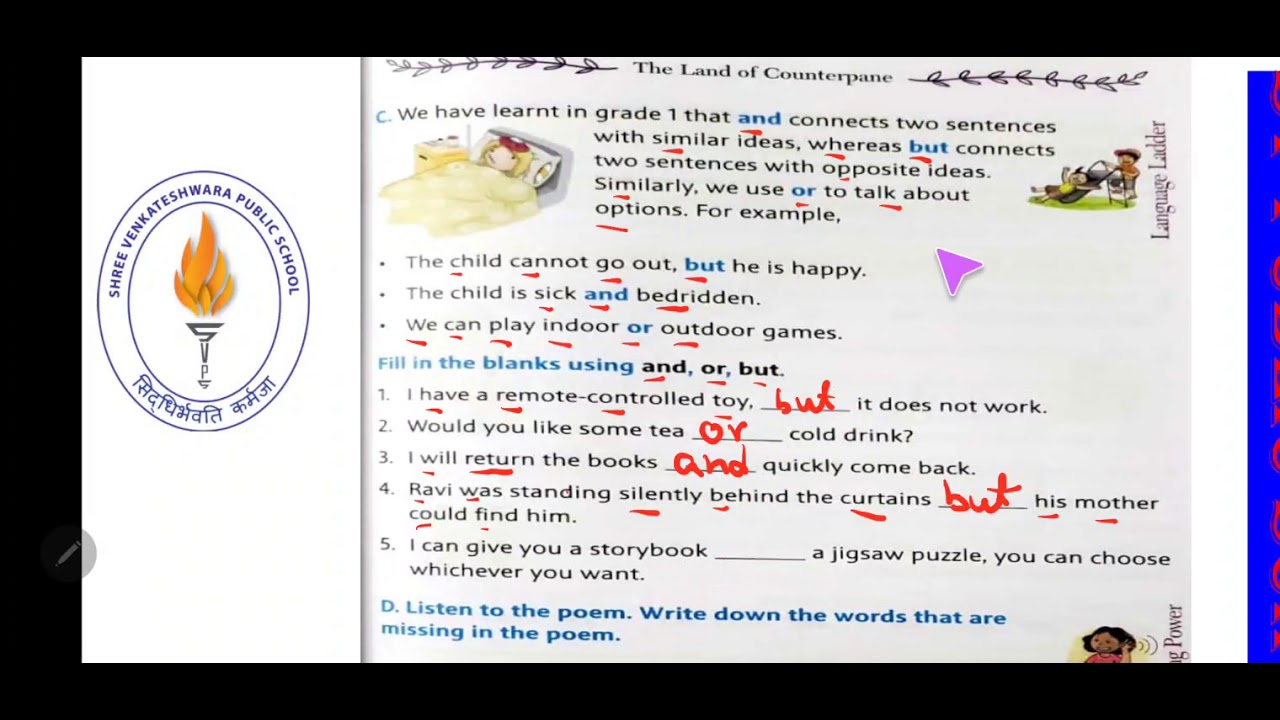 The Land of Counterpane
C. We have learnt in grade 1 that and connects two sentences
with similar ideas, whereas but connects
two sentences with opposite ideas.
Similarly, we use or to talk about
options. For example,
Language Ladder
• The child cannot go out, but he is happy.
• The child is sick and bedridden.
• We can play indoor or outdoor games.
Fill in the blanks using and, or, but.
1. I have a remote-controlled toy, but it does not work.
2. Would you like some tea or cold drink?
3. I will return the books and quickly come back.
4. Ravi was standing silently behind the curtains but his mother
could find him.
5. I can give you a storybook ________ a jigsaw puzzle, you can choose
whichever you want.
D. Listen to the poem. Write down the words that are
missing in the poem.
Power
SHREE VENKATESHWARA PUBLIC SCHOOL
SVPS
सिद्धिर्भवति कर्मजा